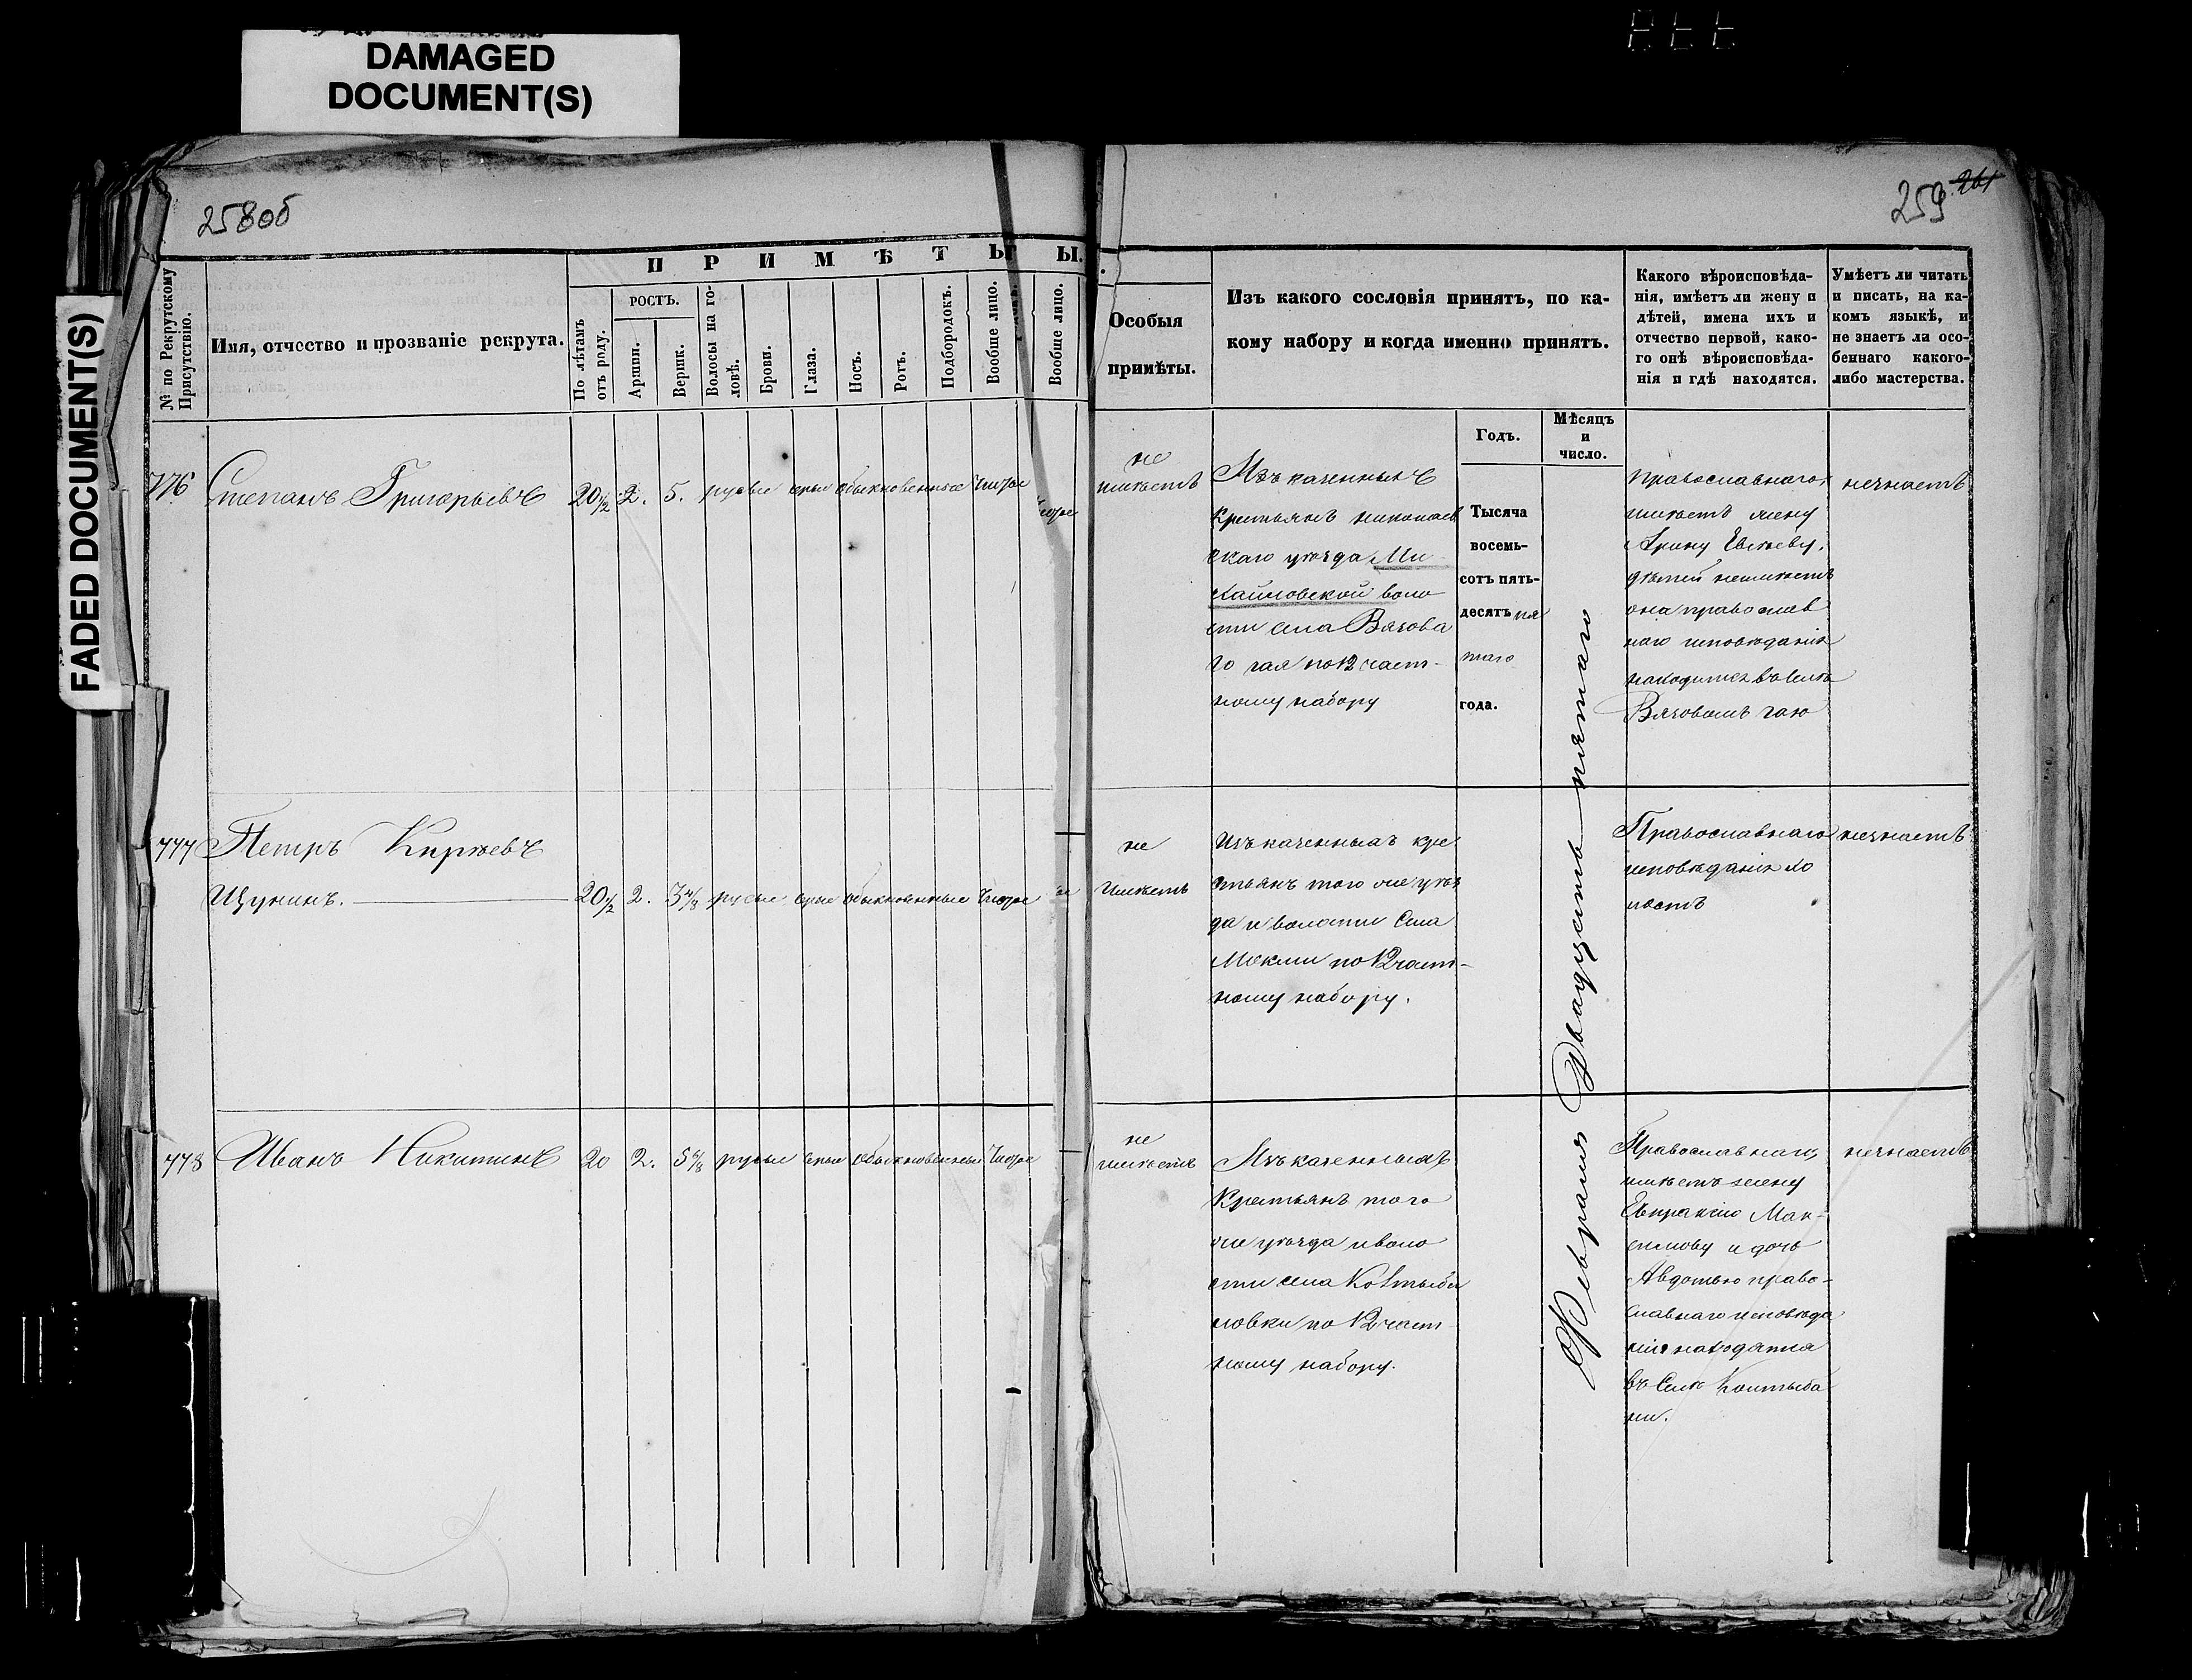 DAMAGED
DOCUMENT(S)
FADED DOCUMENT(S)
258об
259
261
ПРИМѢТЫ
Ы.
№ по Рекрутскому
Присутствію.
Имя, отчество и прозваніе рекрута.
По лѣтамъ
отъ роду.
РОСТЪ.
Аршин.
Вершк.
Волосы на го-
ловѣ.
Брови.
Глаза.
Носъ.
Ротъ.
Подбородокъ.
Вообще лицо.
Вообще лицо.
Особыя
примѣты.
Изъ какого сословія принятъ, по ка-
кому набору и когда именно принятъ.
Годъ.
Мѣсяцъ
и
число.
Какого вѣроисповѣда-
нія, имѣетъ ли жену и
дѣтей, имена ихъ и
отчество первой, како-
го онѣ вѣроисповѣда-
нія и гдѣ находятся.
Умѣетъ ли читать
и писать, на ка-
комъ языкѣ, и
не знаетъ ли осо-
беннаго какого-
либо мастерства.
776
Степанъ Григорьевъ
20½ 2. 5. русые серые обыкновенные чистое
чистое
не
имѣетъ
Изъ казенныхъ
крестьянъ николаев
скаго уѣзда Ми
хайловской воло
сти села Вязова
го гая по 12 част-
ному набору
Тысяча
восемь-
сотъ пять-
десятъ пя
таго
года.
Февраля Двадцать пятаго
православнаго
имѣетъ жену
Арину Евсѣеву.
дѣтей неимѣетъ
она православ
наго исповѣданія
находится въ селѣ
Вязовомъ гаю
незнаетъ
777
Петръ Кирѣевъ
Щукинъ.
20½ 2. 3 4/8 русые серые обыкновенные чистое
не
имѣетъ
Изъ казенныхъ кре
стьянъ того же уѣз
да и волости Села
Мокши по 12 част-
ному набору.
Православнаго
исповѣданія хо
лостъ
незнаетъ
778
Иванъ Никитинъ
20 2. 5 6/8 русые серые обыкновенные чистое
не
имѣетъ
Изъ казенныхъ
Крестьянъ того
же уѣзда и воло
сти села Колтыба
новки по 12 част
ному набору.
Православнаго
имѣетъ жену
Евпраксию Мак-
симову и дочь
Авдотью право-
славнаго исповѣда
нія находятся
въ Селѣ Колтыба
незнаетъ